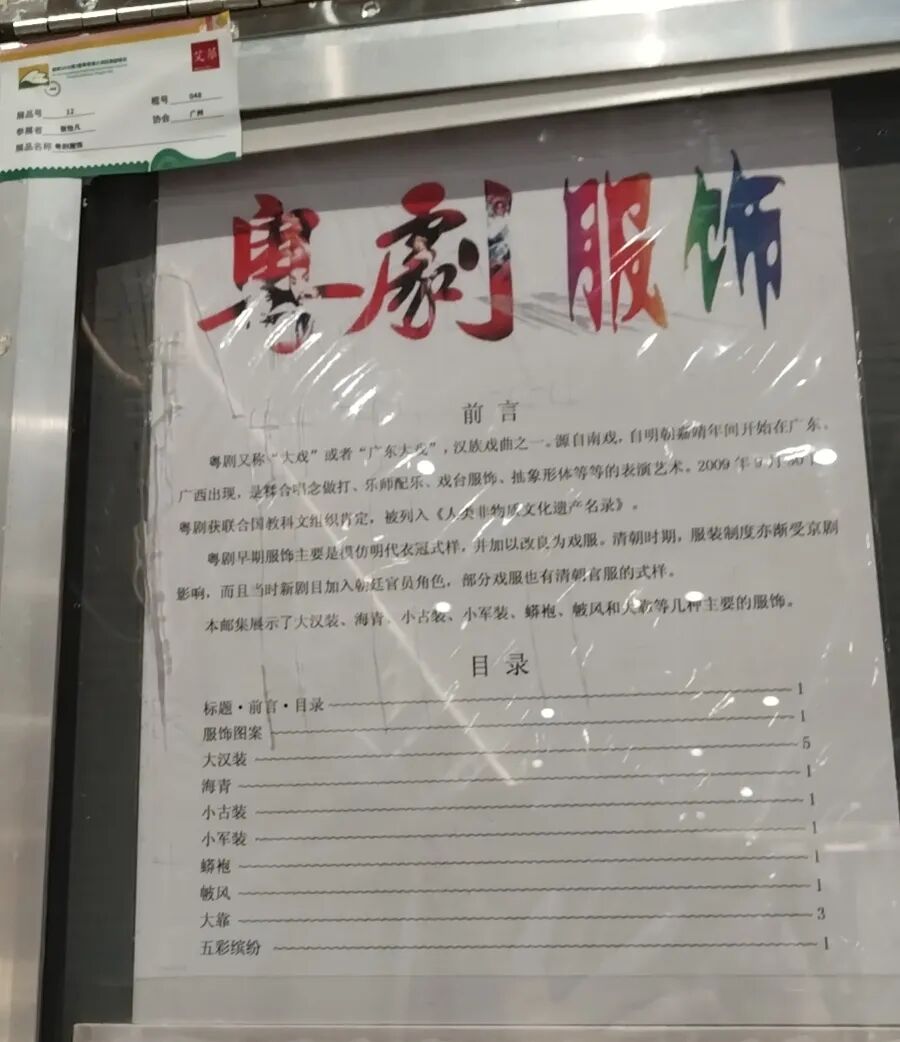 艾華
展品号 12 框号 048
参展者 协会 广州
展品名称 粤剧服饰
粤劇服饰
前言
粤剧又称“大戏”或者“广东大戏”，汉族戏曲之一。源自南戏，自明朝嘉靖年间开始在广东、
广西出现，是糅合唱念做打、乐师配乐、戏台服饰、抽象形体等等的表演艺术。2009年9月30日，
粤剧获联合国教科文组织肯定，被列入《人类非物质文化遗产名录》。
粤剧早期服饰主要是模仿明代衣冠式样，并加以改良为戏服。清朝时期，服装制度亦渐受京剧
影响，而且当时新剧目加入朝廷官员角色，部分戏服也有清朝官服的式样。
本邮集展示了大汉装、海青、小古装、小军装、蟒袍、帔风和大靠等几种主要的服饰。
目录
标题·前言·目录 1
服饰图案 1
大汉装 5
海青 1
小古装 1
小军装 1
蟒袍 1
帔风 1
大靠 3
五彩缤纷 1